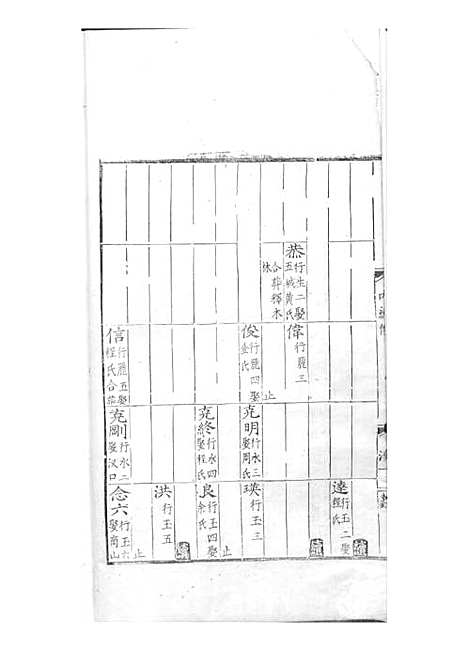 達 行玉二娶
程氏
續
續
恭 行生二娶
五城黃氏
合葬釋水
林
偉 行麗三
俊 行麗四娶
金氏
止
堯明 行水三
娶周氏
瑛 行玉三
堯終 行水四
娶程氏
良 行玉四娶
余氏
止
續
洪 行玉五
止
信 行麗五娶
程氏合葬
堯剛 行水二
娶汊口
念六 行玉六
娶南山